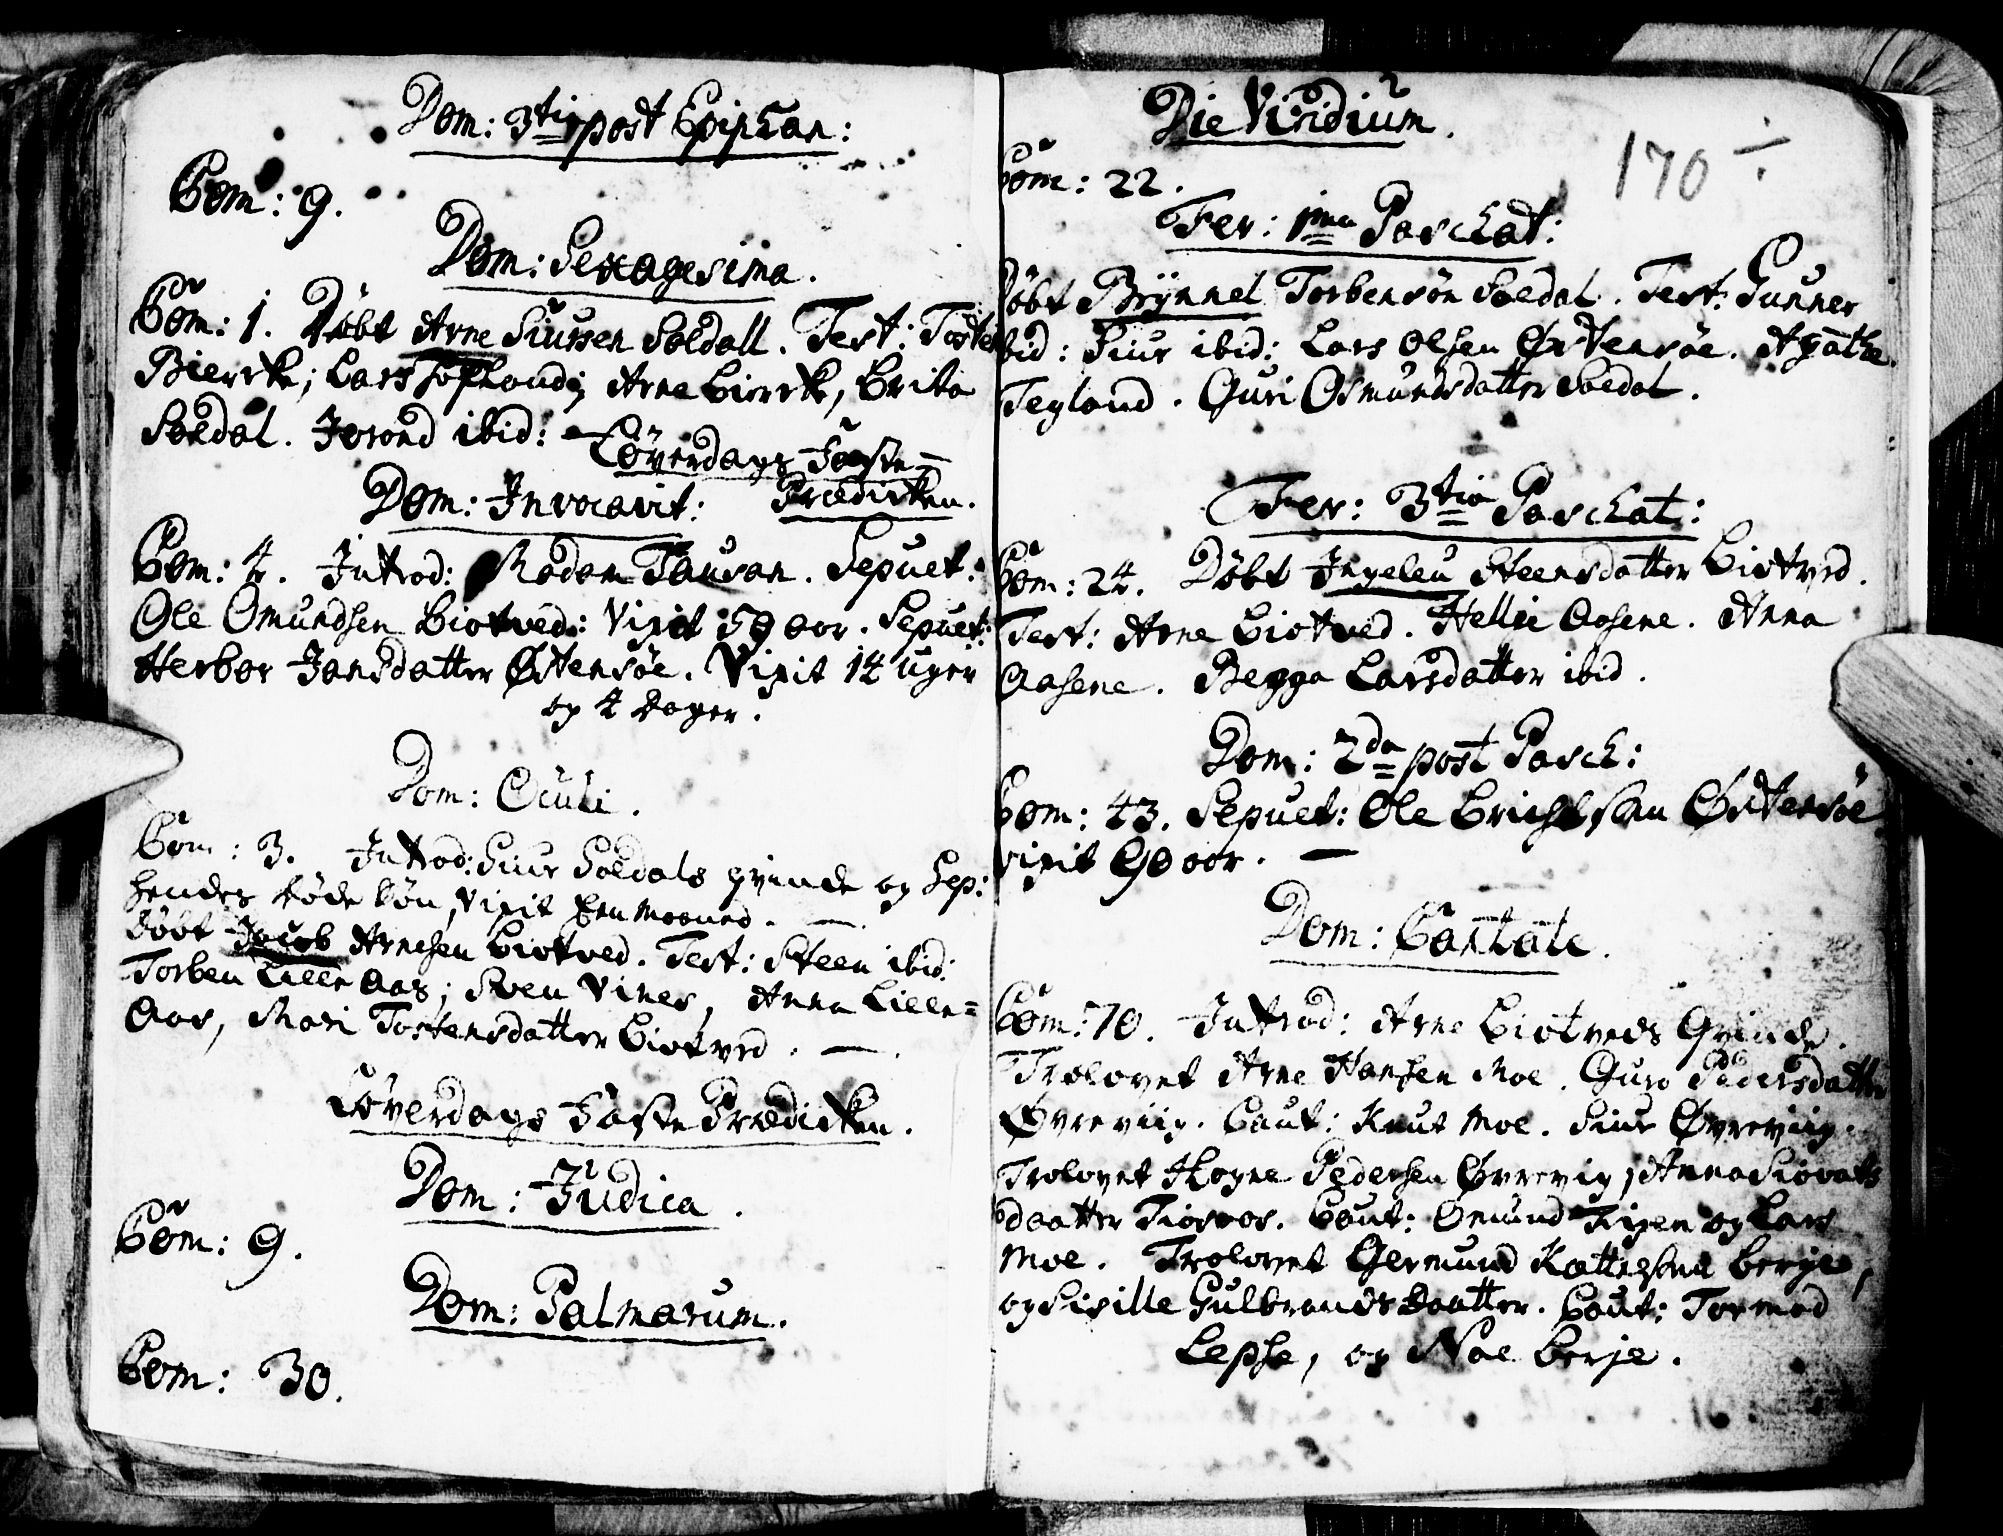 Dom: 3tia post Epiphan:
Com: 9.
Dom: Sexagesima.
Com: 1. Døbt Arne Siursen Soldall. Test: Tosten
Biercke; Lars Tophand; Arne Biercke, Brita
Soldal. Jorond ibid:
Löverdags Faste=
Dom: Invocavit: Prædicken.
Com: 4. Introd: Madam Tausan. Sepult:
Ole Omundsen Biotved: Vixit 59 aar. Sepult:
Herbor Jansdatter Østensøe. Vixit 14 uger
og 4 dager.
Dom: Oculi.
Com: 3. Introd: Siur Soldals qvinde og Sep:
hendes døde Søn, Vixit Een Maaned.
Døbt Jacob Arnesen Biotved. Test: Steen ibid:
Torben Lille Aas; Sven Vines, Anna Lille=
Aas, Mari Tostensdatter Biotved.
Löverdags Faste Prædicken.
Dom: Judica.
Com: 9.
Dom: Palmarum.
Com: 30.
Die Viridium.
170 ÷
Com: 22.
Fer: 1ma Paschat:
Døbt Brÿnnel Torbensøn Soedal. Test: Gunner
ibid: Siur ibid: Lars Olsen Østensøe. Agathe
Tegland. Guri Osmundsdatter Soedal.
Fer: 3tia Paschat:
Com: 24. Døbt Ingeleu Steensdatter Biotved.
Test: Arne Biotved. Hellje Aasene. Anna
Aasene. Begga Larsdatter ibid.
Dom: 2da post Pasch:
Com: 43. Sepult: Ole Erichsen Østensøe
vixit 90 aar.
Dom: Cantate.
Com: 70. Introd: Arne Biotveds Qvinde.
Trolovet Arne Hansen Moe. Guro Pedersdatter
Øvreviig. Caut: Knut Moe. Siur Øvreviig.
Trolovet Hogne Pedersen Øvrevig, Anna Siovats
daatter Tioraas. Caut: Omund og Lars
Moe. Trolovet Germund Berge,
og Sisille Gulbrandsdaatter. Caut: Tormod
Lepse, og Noe Berje.